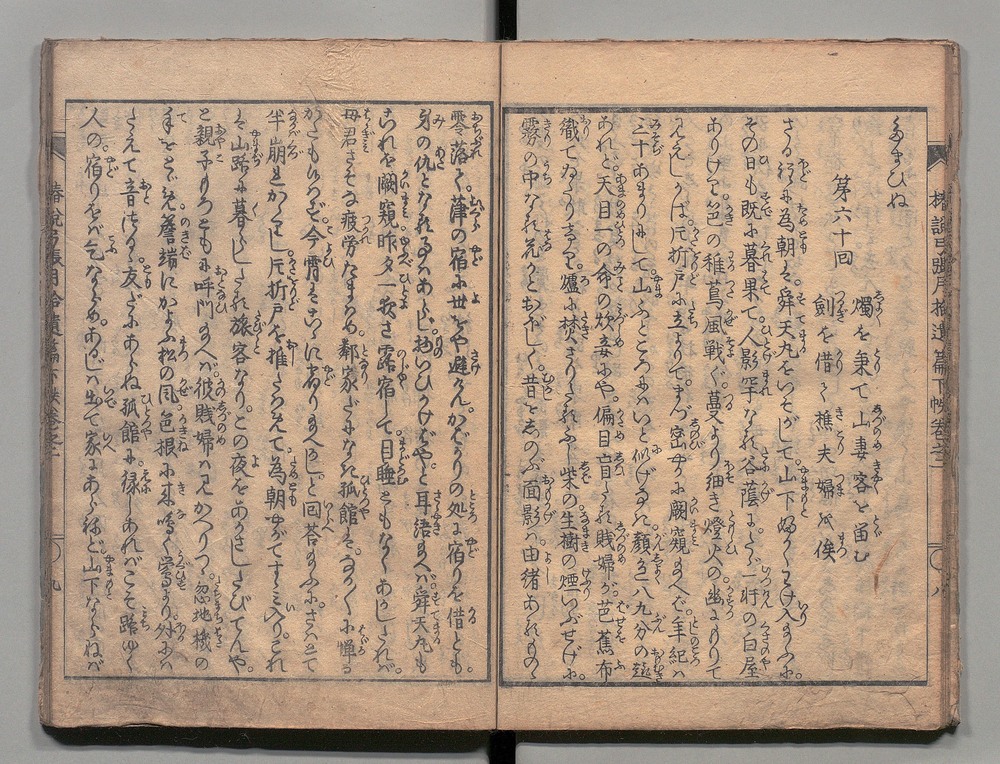 給ひね
第六十回
燭を秉て山妻客を留む
劔を借て樵夫婦を俟
さる程に為朝は舜天丸をいそがして山下
その日も既に暮果て人影罕なる谷蔭に一軒の白屋
ありけり笆の稚蔦風戦ぎ蔓より細き燈火の幽に
見えしかば片折戸に立よりてまづ密やかに闚窺給へば年紀は
三十あまりにして山ふところにはいと似げなき顔色八九分の
あれど天目一の命の炊妾にや偏目盲たる賤婦が芭蕉布
織てゐたり爐に焚さしたる柴の生樹の煙いぶせげに
霧の中なる花かとおぼしく昔をしのぶ面影は由緒あるもの
零落て葎の宿に世をや避けんかゝりの処に宿りを借とも
身の仇となる事はあらじ物いひかけばやと耳語給へば舜天丸も
これを闚窺昨夕一夜さ露宿して目睡もなくあかしたれば
母君さぞな疲労たまはめ鄰家だになき孤館
今霄はこゝに宿り給へかしと回答給ふに
半崩れかゝりし片折戸を推ひらきて為朝やがてすゝみ入りこれ
は山路に暮したる旅客なりこの夜をあかさしたびてんや
と親子もろともに呼門給へば彼賤婦は見かへりつゝ忽地機の
手をとゞめ簷端にかよふ松の風色根に来鳴く鶯より外には
たえて音する友だにあらぬ孤館に侍れば
人の宿りをば乞なめあるじは出て家にあらねど山下ならねば
椿説弓張月拾遺篇下帙巻之一
八
椿説弓張月拾遺篇下帙巻之一
九